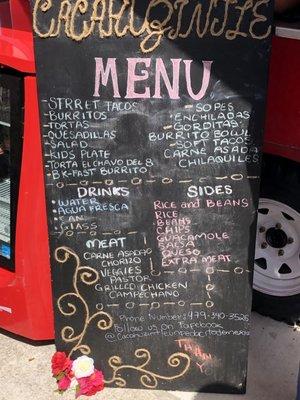 CACAHUZINTLE
MENU
-STRRET TACOS
-BURRITOS
-TORTAS
-QUESADILLAS
-SALAD
-KIDS PLATE
-TORTA EL CHAVO DEL 8
-BK-FAST BURRITO
-SOPES
-ENCHILADAS
-GORDITAS
BURRITO BOWL
-SOFT TACOS
CARNE ASADA
CHILAQUILES
DRINKS
-WATER
-AGUA FRESCA
-CAN
-GLASS
SIDES
RICE and BEANS
RICE
BEANS
CHIPS
GUACAMOLE
SALSA
QUESO
EXTRA MEAT
MEAT
CARNE ASADA
CHORIZO
VEGGIES
PASTOR
GRILLED CHICKEN
CAMPECHANO
Phone Number: 979-340-3526
Follow us on Facebook
THANK
Y